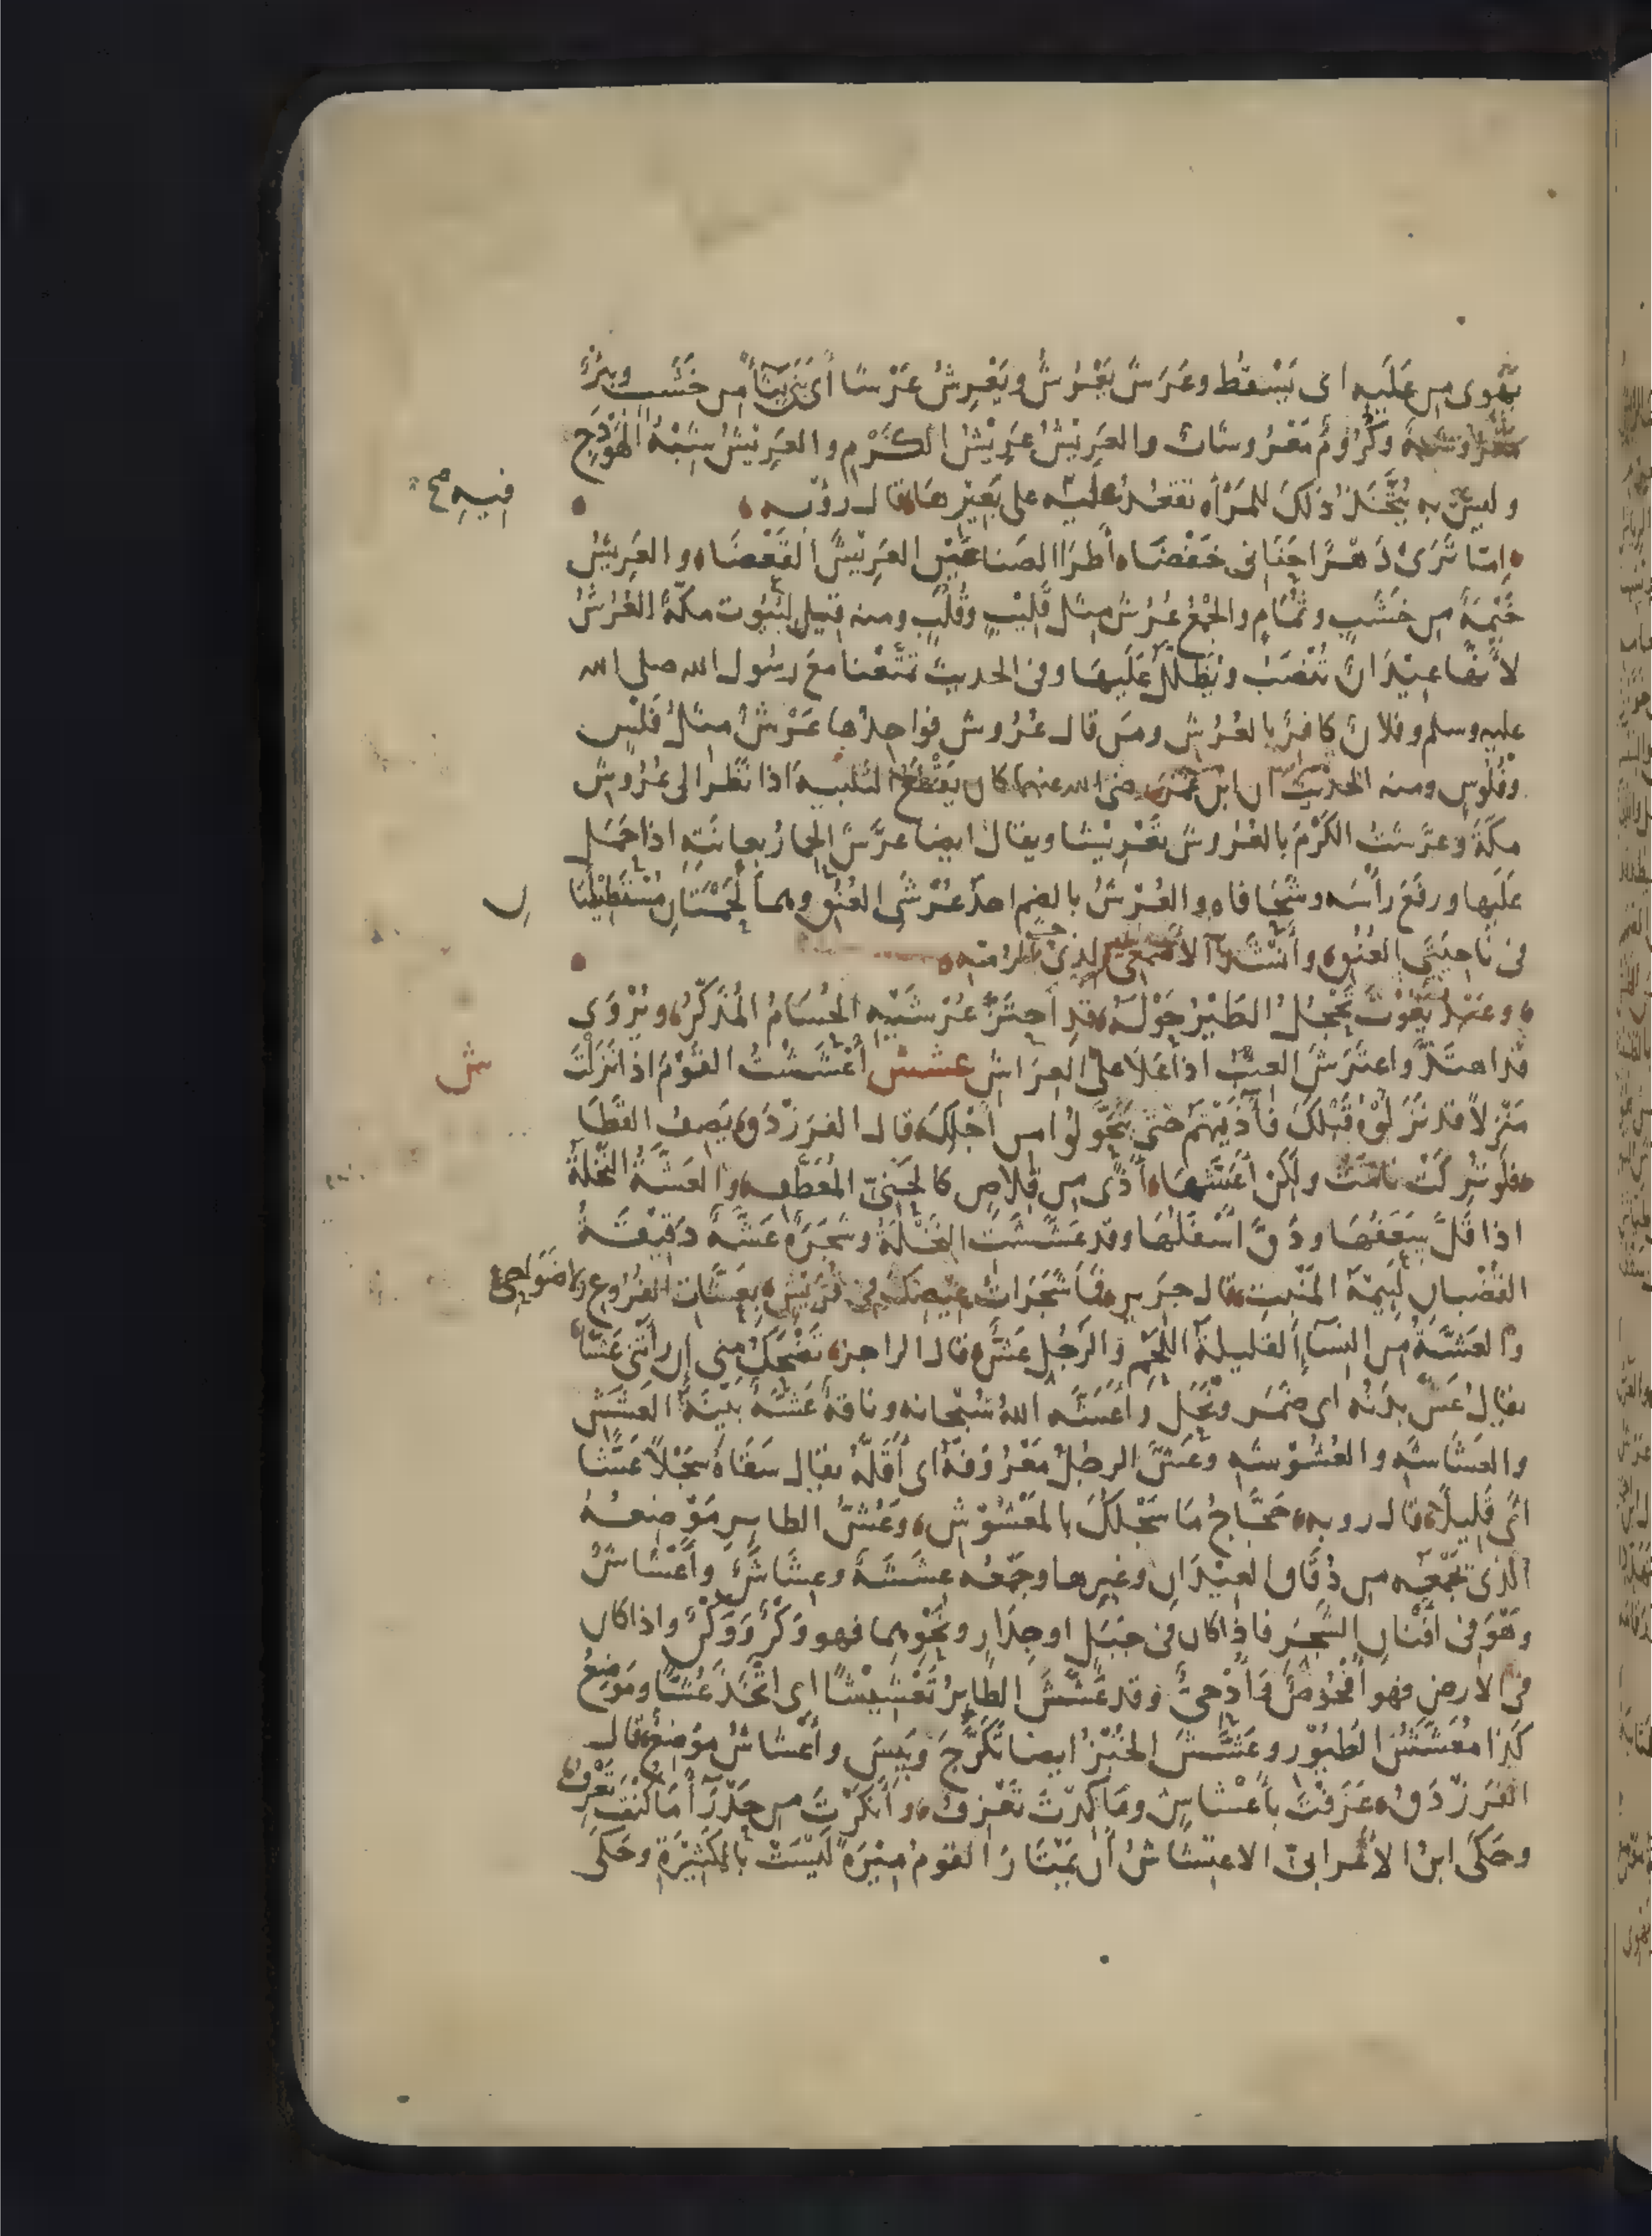 يَهْوِى مِن عَلَيهِ اى يَسْقط وعَرَشَ يَعْرُشُ ويَعْرِشُ عَرْشًا أى بَنَى بِنَاءً مِن خَشَب وبِئْرٌ
مَعْرُوشَةٌ وكُرُومٌ مَعْرُوشَاتٌ والعَرِيْشُ عَرِيْشُ الكَرْمِ والعَرِيْشُ شِبْهُ الهَوْدَجِ
وليسَ به يُتَّخَذُ ذلكَ للمَرْأة تَقعُدُ عَلَيْه على بَعِيْرِها قال رؤبه
فيهِ صح
اِمّا تَرَىْ دَهْرًا حَنَانِى خَفْضَا أطْرَ الصَنَاعَيْنِ العَرِيْشَ القَعْضَا والعَرِيْشُ
خَيْمَةٌ مِن خَشَبٍ وثُمَامٍ والجَمْعُ عُرُشٌ مِثل قَلِيْبٍ وقُلُبٍ ومنه قيل لبُيُوت مكّةَ العُرُشُ
لأنَّهَا عِيْدَانٌ تُنْصَبُ ويُظَلَّلُ عَلَيهَا وفى الحديث تَمَتَّعْنَا مَعَ رسُول الله صلى الله
عليه وسلم وفلانٌ كافِرٌ بالعُرُش ومَن قال عُرُوش فوَاحِدُها عَرْشٌ مِثلُ فَلْسٍ
وفُلُوسٍ ومنه الحَدِيْثُ أن ابن عُمَرَ رضى الله عنهما كان يَقْطَعُ التلبيَة اذا نَظَرَ الى عُرُوشِ
مكةَ وعَرَّشتُ الكَرْمَ بالعُروش تَعْرِيْشًا ويقال ايضا عَرَّشَ الحِمارُ بعانَتِهِ اذا حَمَل
عَلَيها ورفَعَ رأسَه وشَحَا فاه والعُرْشُ بالضم احدُ عُرْشَىِ العُنُق وهما لَحْمَتَانِ مُسْتَطِيْلَتَا
نِ
فى نَاحِيَتَىِ العُنُق وأنشَدَ الأصمعى لذى الرُمّه
وعَبْدُ يَغُوْثَ تَحْجُلُ الطَيْرُ حَوْلَهُ قَدِ احتَزَّ عُرْشَيْهِ الحُسَامُ المُذَكَّرُ ويُرْوَى
قد اهتَذَّ واعتَرَشَ العِنَبُ اذا عَلَا على العِرَاش عشش أعْشَشْتُ القَوْمَ اذا نَزَلْتَ
ش
مَنْزِلاً قد نَزَلُوْهُ قَبْلَكَ فآذَيْتَهُم حَتّى يَتَحَوَّلُوا من أجْلِكَ قال الفرَزْدَق يَصِفُ القَطَا
فلَو تُرِكَتْ نامَتْ ولَكِنْ أعَشَّهَا أذًى مِن قِلاصٍ كالحَنِىِّ المُعَطَّفِ والعَشَّةُ النَخْلَةُ
اذا قَلَّ سَعَفُهَا ودَقَّ أسْفَلُهَا وقد عَشَّشَتِ النَخْلَةُ وشَجَرَةٌ عَشَّةٌ دَقِيْقَةُ
القُضْبان لَئِيْمَةُ المَنْبِتِ قال جَرِير فَمَا شَجَرَاتُ عِيْصِكَ فى قُرَيْشٍ بعَشَّاتِ الفُرُوْعِ ولا ضَوَاحِى
والعَشَّةُ مِن النِسَاءِ القليلةُ اللَحْمِ والرَجُل عَشٌّ قال الراجز تَضْحَكُ مِنى ان رَأَتنِى عَشَّا
يقال عَشَّ بدَنُه اى ضَمَرَ ونَحَلَ وأعَشَّه اللهُ سُبْحَانه وناقةٌ عَشَّةٌ بَيِّنَةُ العَشَشِ
والعَشَاشَةِ والعُشُوْشَةِ وعَشَّ الرجُلُ مَعْرُوفَهُ اى أقَلَّهُ يقال سَقَاهُ سَجْلاً عَشًّا
أىْ قَلِيلًا قال روبه حَجّاجُ مَا سَجْلُكَ بالمَعْشُوْشِ وعُشُّ الطايرِ مَوْضِعُهُ
الذى تَجْمَعُه مِن دُقَاقِ العِيْدَانِ وغيرِها وجَمْعُه عِشَشَةٌ وعِشَاشٌ وأعْشَاشٌ
وهُوَ فى أفْنَانِ الشَجَرِ فاذَا كان فى جَبَلٍ او جِدَارٍ ونَحْوِهِما فهو وَكْرٌ ووَكْنٌ واذا كان
فى الارض فهو أُفْحُوْصٌ وأُدْحِىٌّ وقد عَشَّشَ الطَايرُ تَعْشِيْشًا اى اتَّخَذَ عُشًّا ومَوْضِعُ
كَذَا مُعَشَّشُ الطُيُوْر وعَشَّشَ الخُبْزُ ايضا تَكَرَّجَ ويَبِسَ وأعْشَاشٌ مَوْضِعٌ قال
الفَرَزْدَق عَزَفْتَ بأَعْشَاشٍ وما كِدْتَ تَعْزِفُ وأنْكَرْتَ مِن حَدْرَاءَ مَا كُنْتَ تَعْرِفُ
وحَكَى ابنُ الأعْرابىّ الاعتِشَاشُ أن يَمْتَارَ القومُ مِيْرَةً لَيْسَتْ بالكَثِيْرَةِ وحَكَى